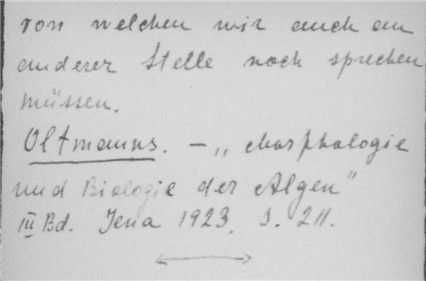 von welchen wir auch an
anderer Stelle noch sprechen
müssen.
Oltmanns. – „Morphologie
und Biologie der Algen"
III Bd. Jena 1923. S. 211.